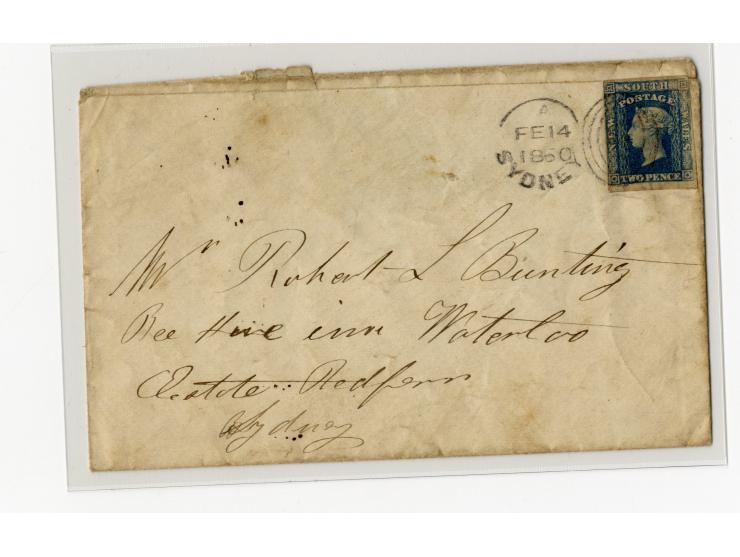 A
FE 14
1860
SYDNEY
SOUTH
POSTAGE
NEW
WALES
TWO PENCE
Mr Robert L Bunting
Bee Hive inn Waterloo
Estate Redfern
Sydney